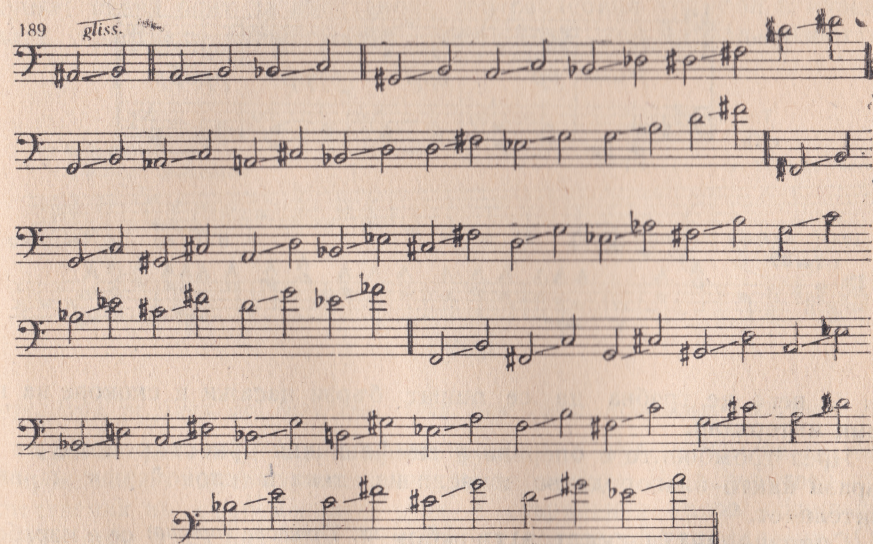 189 gliss.